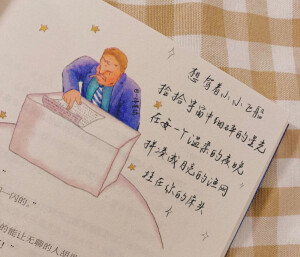 想驾着小小飞船
捡拾宇宙中细碎的星光
在每一个温柔的夜晚
拼凑成月亮的渔网
挂在你的床头
一闪的。”
的能让无聊的人胡